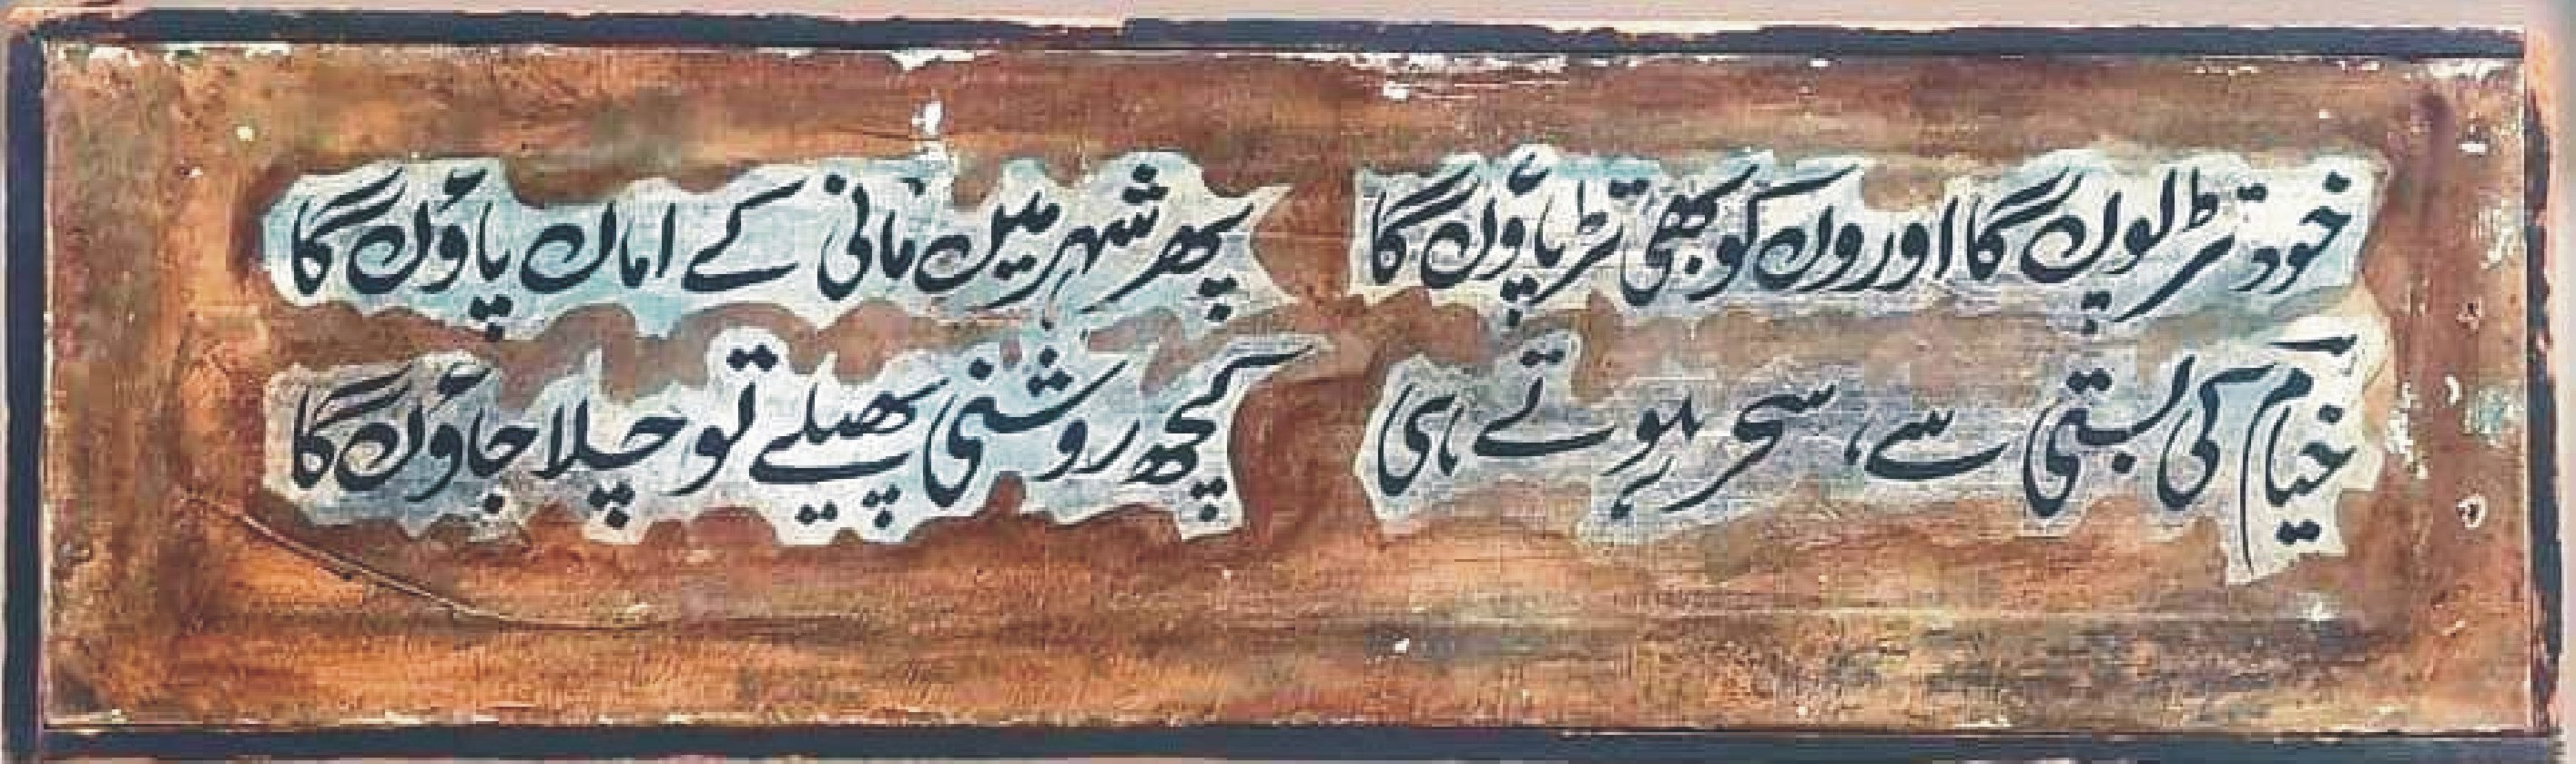 خود تڑپوں گا اوروں کو بھی تڑپاؤں گا
پھر شہر میں مانی کے اماں پاؤں گا
خیام کی بستی سے، سحر ہوتے ہی
کچھ روشنی پھیلے تو چلا جاؤں گا